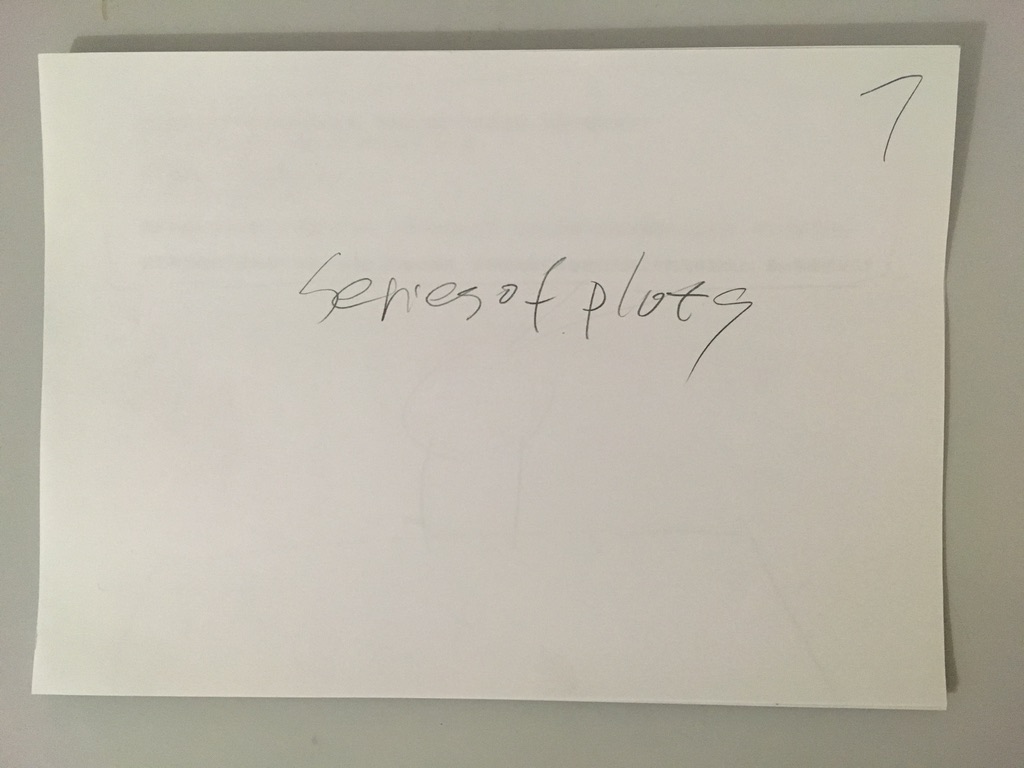 7
series of plots